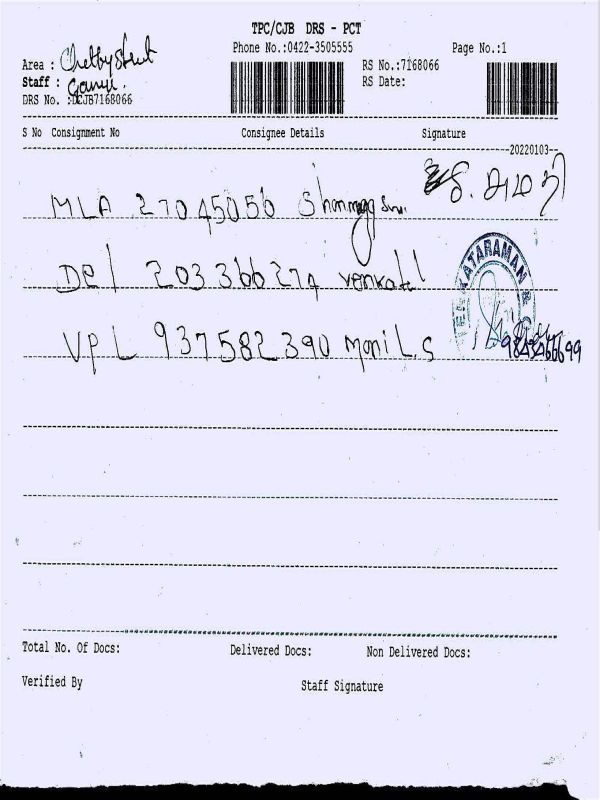 TPC/CJB DRS - PCT
Phone No.:0422-3505555
Page No.:1
Area : Chettystreet
Staff :
DRS No. :DCJB7168066
RS No.:7168066
RS Date:
S No Consignment No Consignee Details Signature
20220103
MLA 27045056
Del 203366274 venkatel
VPL 937582390 Moni L.S
KATARAMAN &
Total No. Of Docs: Delivered Docs: Non Delivered Docs:
Verified By Staff Signature